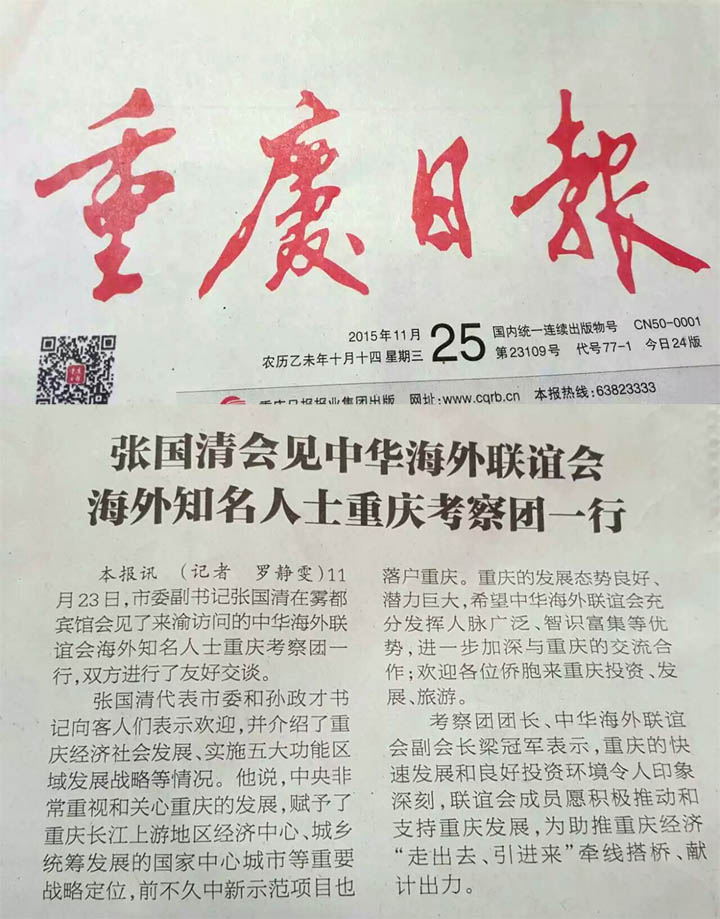 重慶日報
2015年11月
农历乙未年十月十四 星期三
25
国内统一连续出版物号 CN50-0001
第23109号 代号77-1 今日24版
重庆日报报业集团出版 网址:www.cqrb.cn 本报热线:63823333
张国清会见中华海外联谊会
海外知名人士重庆考察团一行
本报讯 (记者 罗静雯)11
月23日,市委副书记张国清在雾都
宾馆会见了来渝访问的中华海外联
谊会海外知名人士重庆考察团一
行,双方进行了友好交谈。
张国清代表市委和孙政才书
记向客人们表示欢迎,并介绍了重
庆经济社会发展、实施五大功能区
域发展战略等情况。他说,中央非
常重视和关心重庆的发展,赋予了
重庆长江上游地区经济中心、城乡
统筹发展的国家中心城市等重要
战略定位,前不久中新示范项目也
落户重庆。重庆的发展态势良好、
潜力巨大,希望中华海外联谊会充
分发挥人脉广泛、智识富集等优
势,进一步加深与重庆的交流合
作;欢迎各位侨胞来重庆投资、发
展、旅游。
考察团团长、中华海外联谊
会副会长梁冠军表示,重庆的快
速发展和良好投资环境令人印象
深刻,联谊会成员愿积极推动和
支持重庆发展,为助推重庆经济
“走出去、引进来”牵线搭桥、献
计出力。